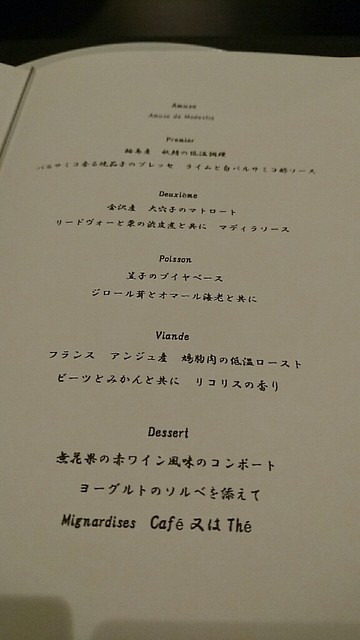 Amuse
Amuse de Modestie
Premier
輪島産 秋鯖の低温調理
バルサミコ香る焼茄子のプレッセ ライムと白バルサミコ酢ソース
Deuxième
金沢産 大穴子のマトロート
リードヴォーと栗の渋皮煮と共に マディラソース
Poisson
笠子のブイヤベース
ジロール茸とオマール海老と共に
Viande
フランス アンジュ産 鳩胸肉の低温ロースト
ビーツとみかんと共に リコリスの香り
Dessert
無花果の赤ワイン風味のコンポート
ヨーグルトのソルベを添えて
Mignardises Café 又は Thé